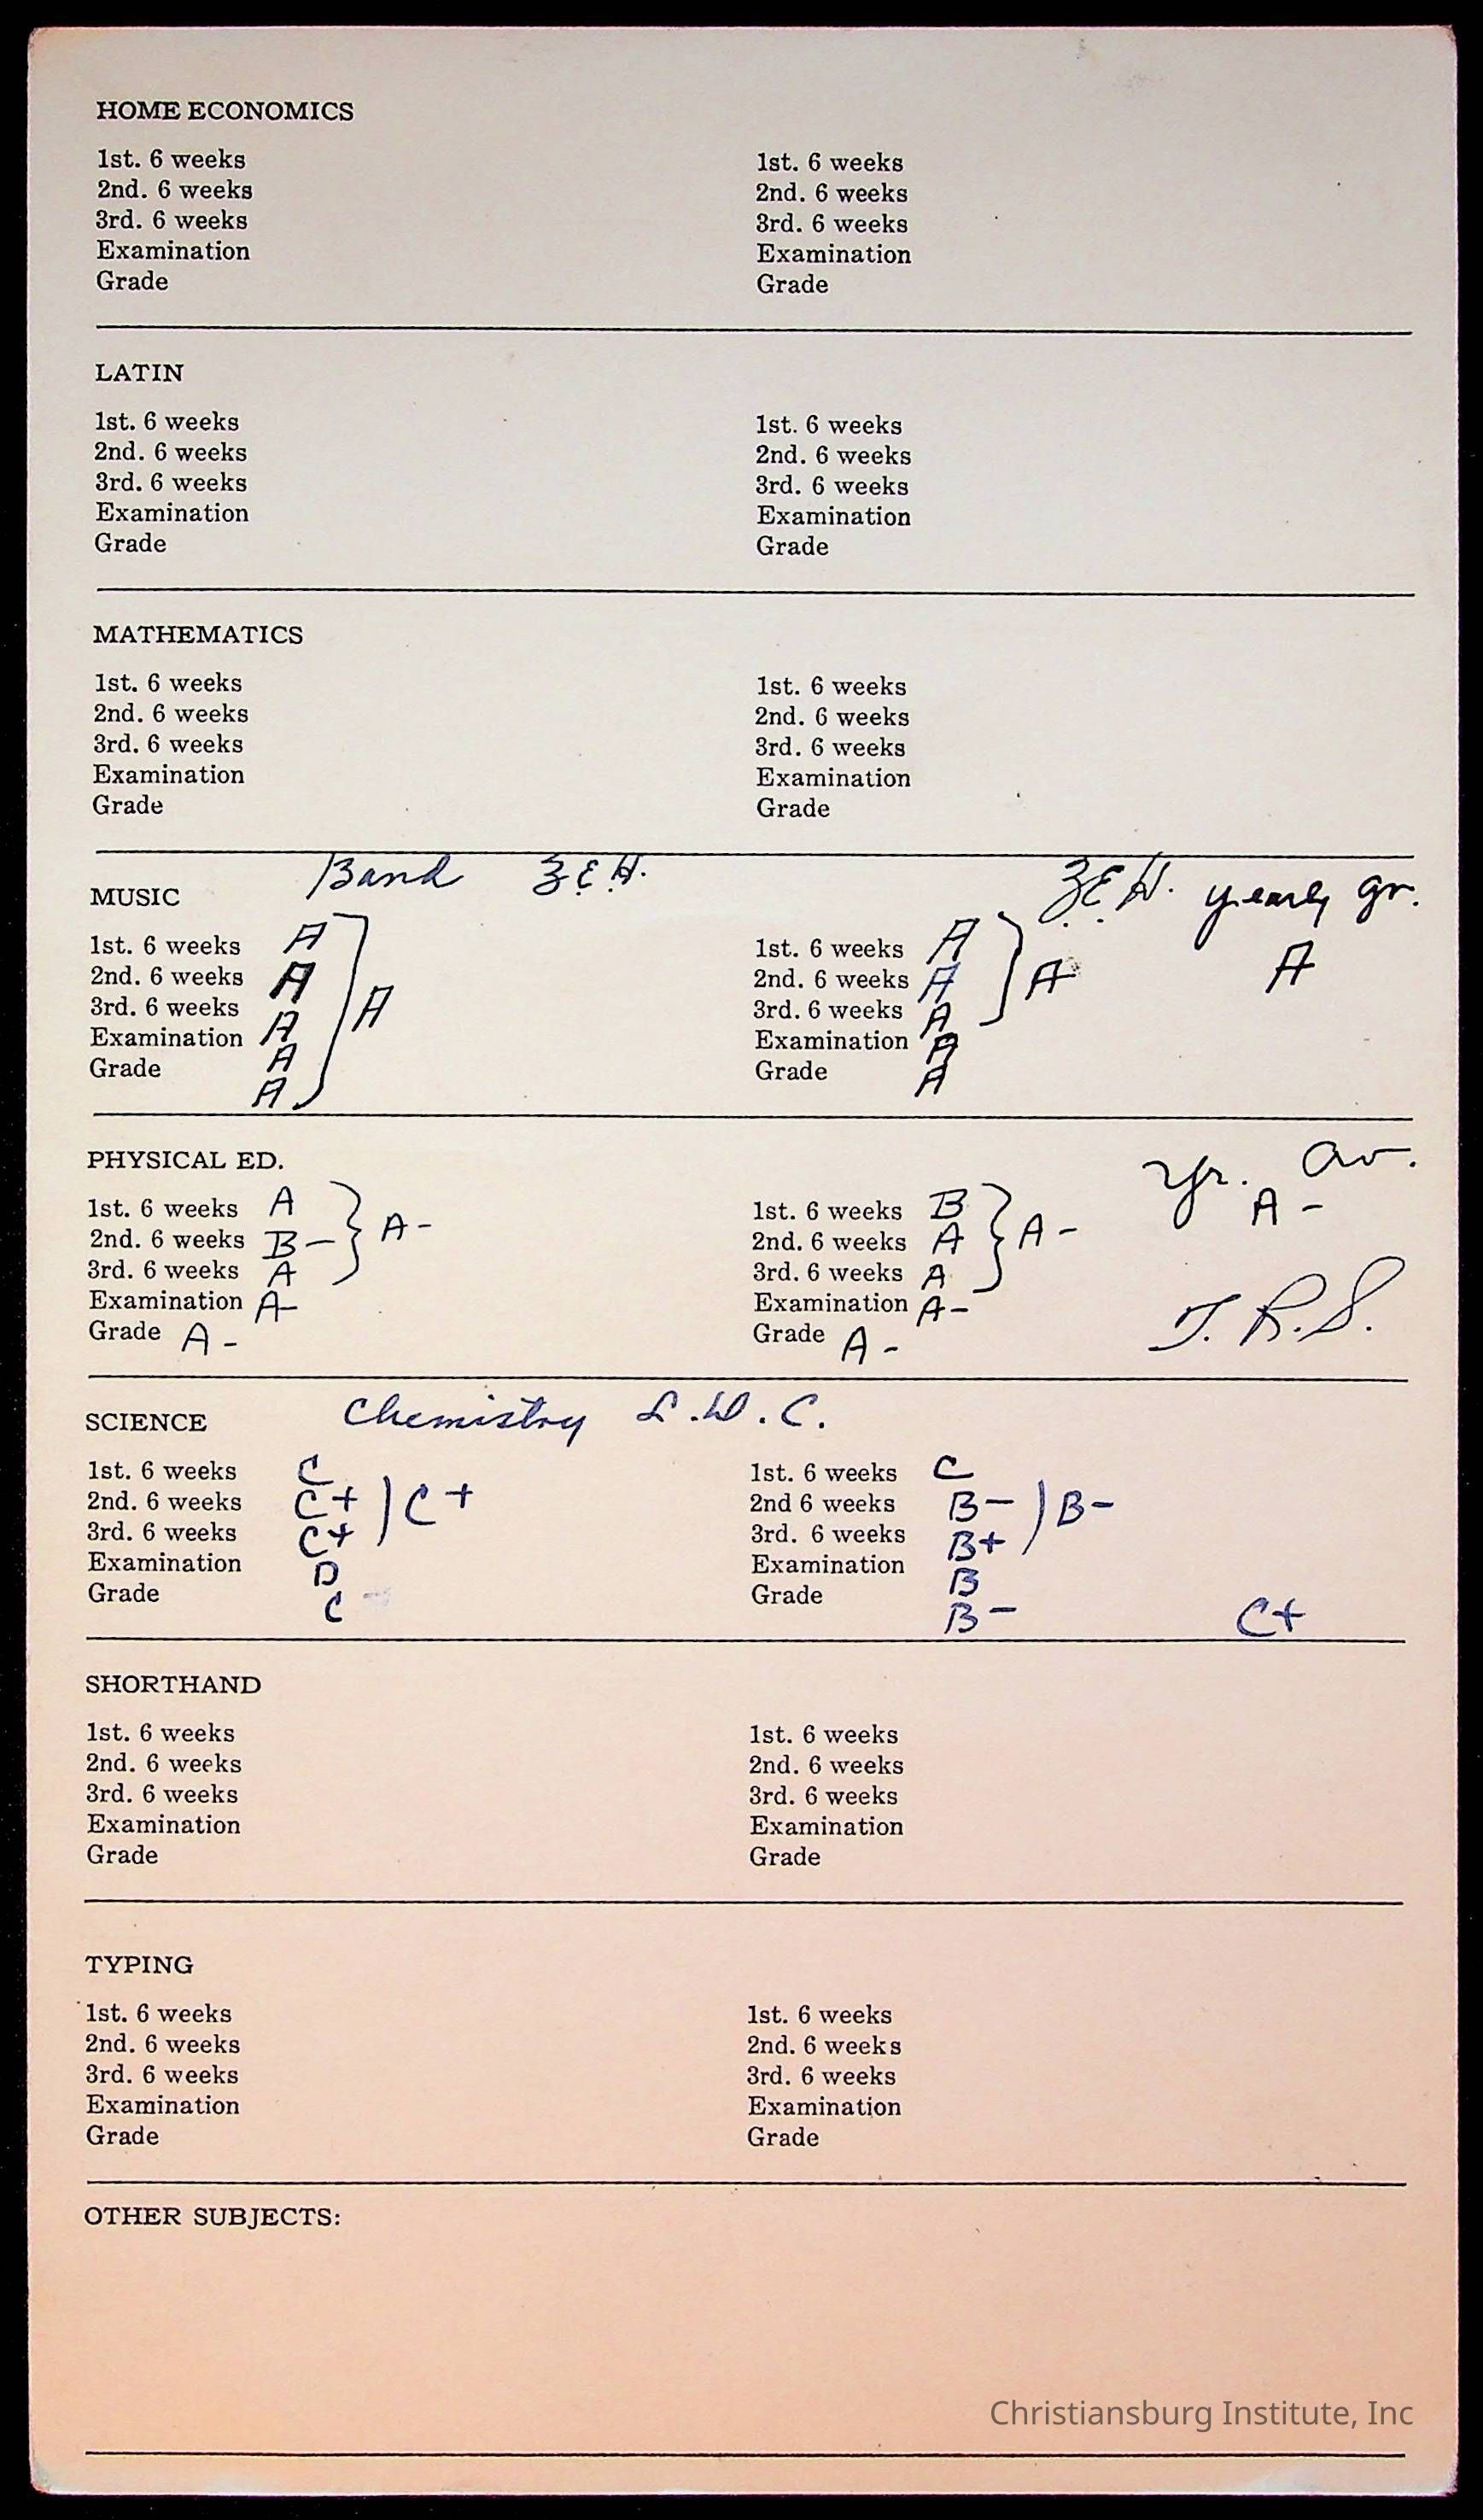 HOME ECONOMICS
1st. 6 weeks 1st. 6 weeks
2nd. 6 weeks 2nd. 6 weeks
3rd. 6 weeks 3rd. 6 weeks
Examination Examination
Grade Grade
LATIN
1st. 6 weeks 1st. 6 weeks
2nd. 6 weeks 2nd. 6 weeks
3rd. 6 weeks 3rd. 6 weeks
Examination Examination
Grade Grade
MATHEMATICS
1st. 6 weeks 1st. 6 weeks
2nd. 6 weeks 2nd. 6 weeks
3rd. 6 weeks 3rd. 6 weeks
Examination Examination
Grade Grade
MUSIC Band Z.E.H. Z.E.H. yearly gr.
1st. 6 weeks A 1st. 6 weeks A A
2nd. 6 weeks A 2nd. 6 weeks A A
3rd. 6 weeks A A 3rd. 6 weeks A
Examination A Examination A
Grade A Grade A
PHYSICAL ED. Yr. Av.
1st. 6 weeks A 1st. 6 weeks B A -
2nd. 6 weeks B- A- 2nd. 6 weeks A A -
3rd. 6 weeks A 3rd. 6 weeks A
Examination A- Examination A-
Grade A - Grade A - T.R.S.
SCIENCE Chemistry L.W.C.
1st. 6 weeks C 1st. 6 weeks C
2nd. 6 weeks C+ C+ 2nd 6 weeks B- B-
3rd. 6 weeks C+ 3rd. 6 weeks B+
Examination D Examination B
Grade C Grade B- C+
SHORTHAND
1st. 6 weeks 1st. 6 weeks
2nd. 6 weeks 2nd. 6 weeks
3rd. 6 weeks 3rd. 6 weeks
Examination Examination
Grade Grade
TYPING
1st. 6 weeks 1st. 6 weeks
2nd. 6 weeks 2nd. 6 weeks
3rd. 6 weeks 3rd. 6 weeks
Examination Examination
Grade Grade
OTHER SUBJECTS:
Christiansburg Institute, Inc